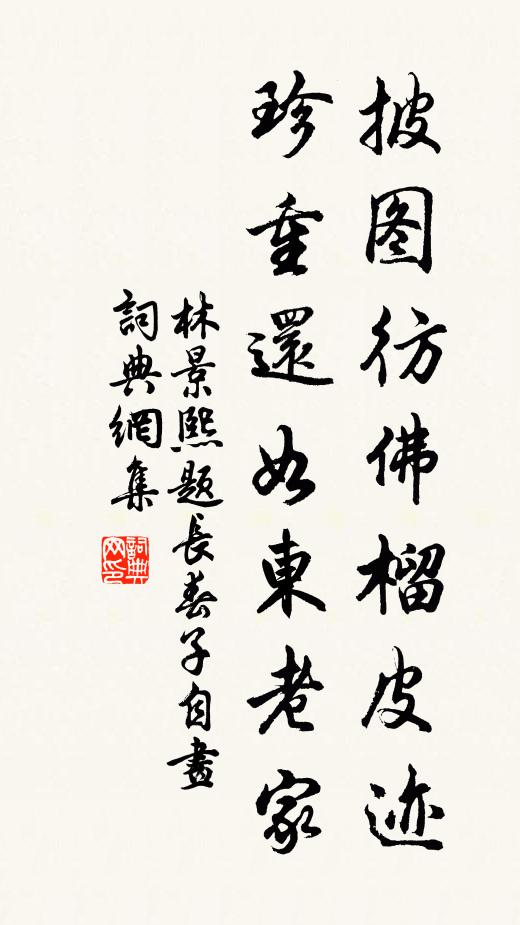 披图彷佛榴皮迹
珍重還如東老家
林景熙题長春子自畫
詞典網集
詞典网印